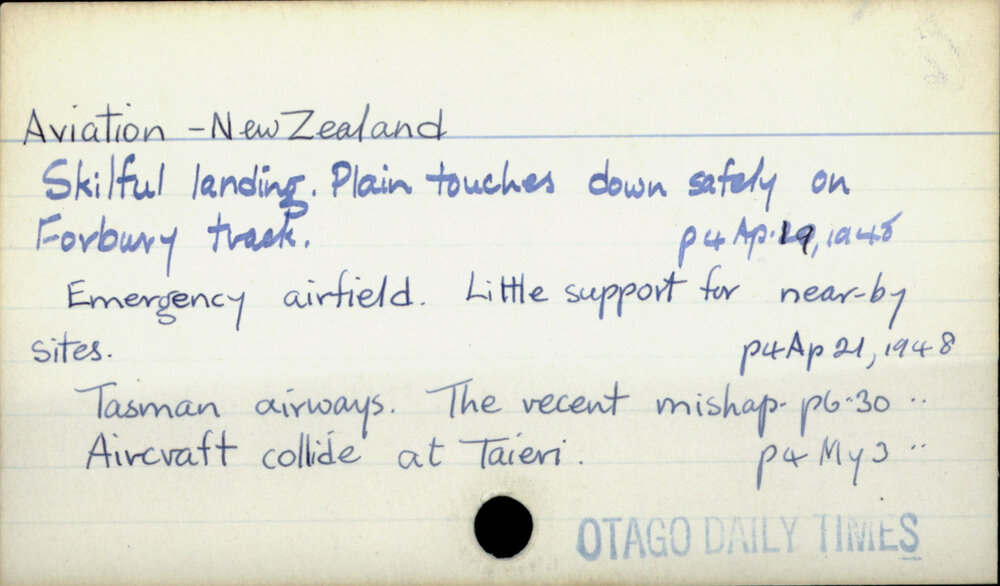 Aviation - New Zealand
Skilful landing. Plain touches down safely on
Forbury track. p4 Ap. 19, 1948
Emergency airfield. Little support for near-by
sites. p4 Ap 21, 1948
Tasman airways. The recent mishap. p6. 30 ..
Aircraft collide at Taieri. p4 My 3 ..
OTAGO DAILY TIMES